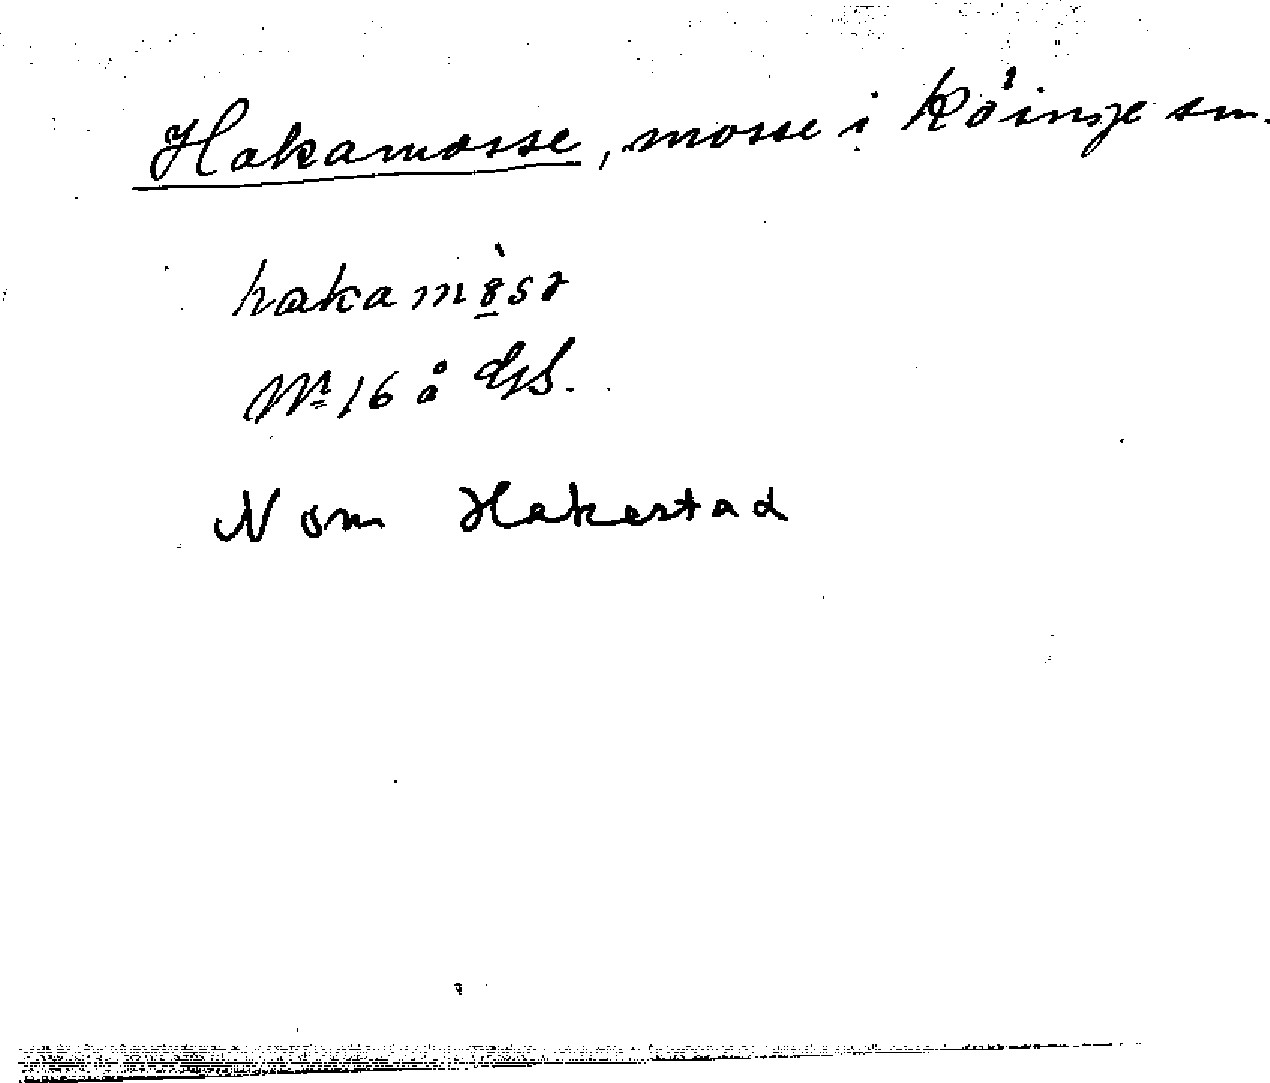 Hakamosse, mosse i Köinge sn.
hakamȯ̱sə
Nr 16 å GS.
N om Hakestad